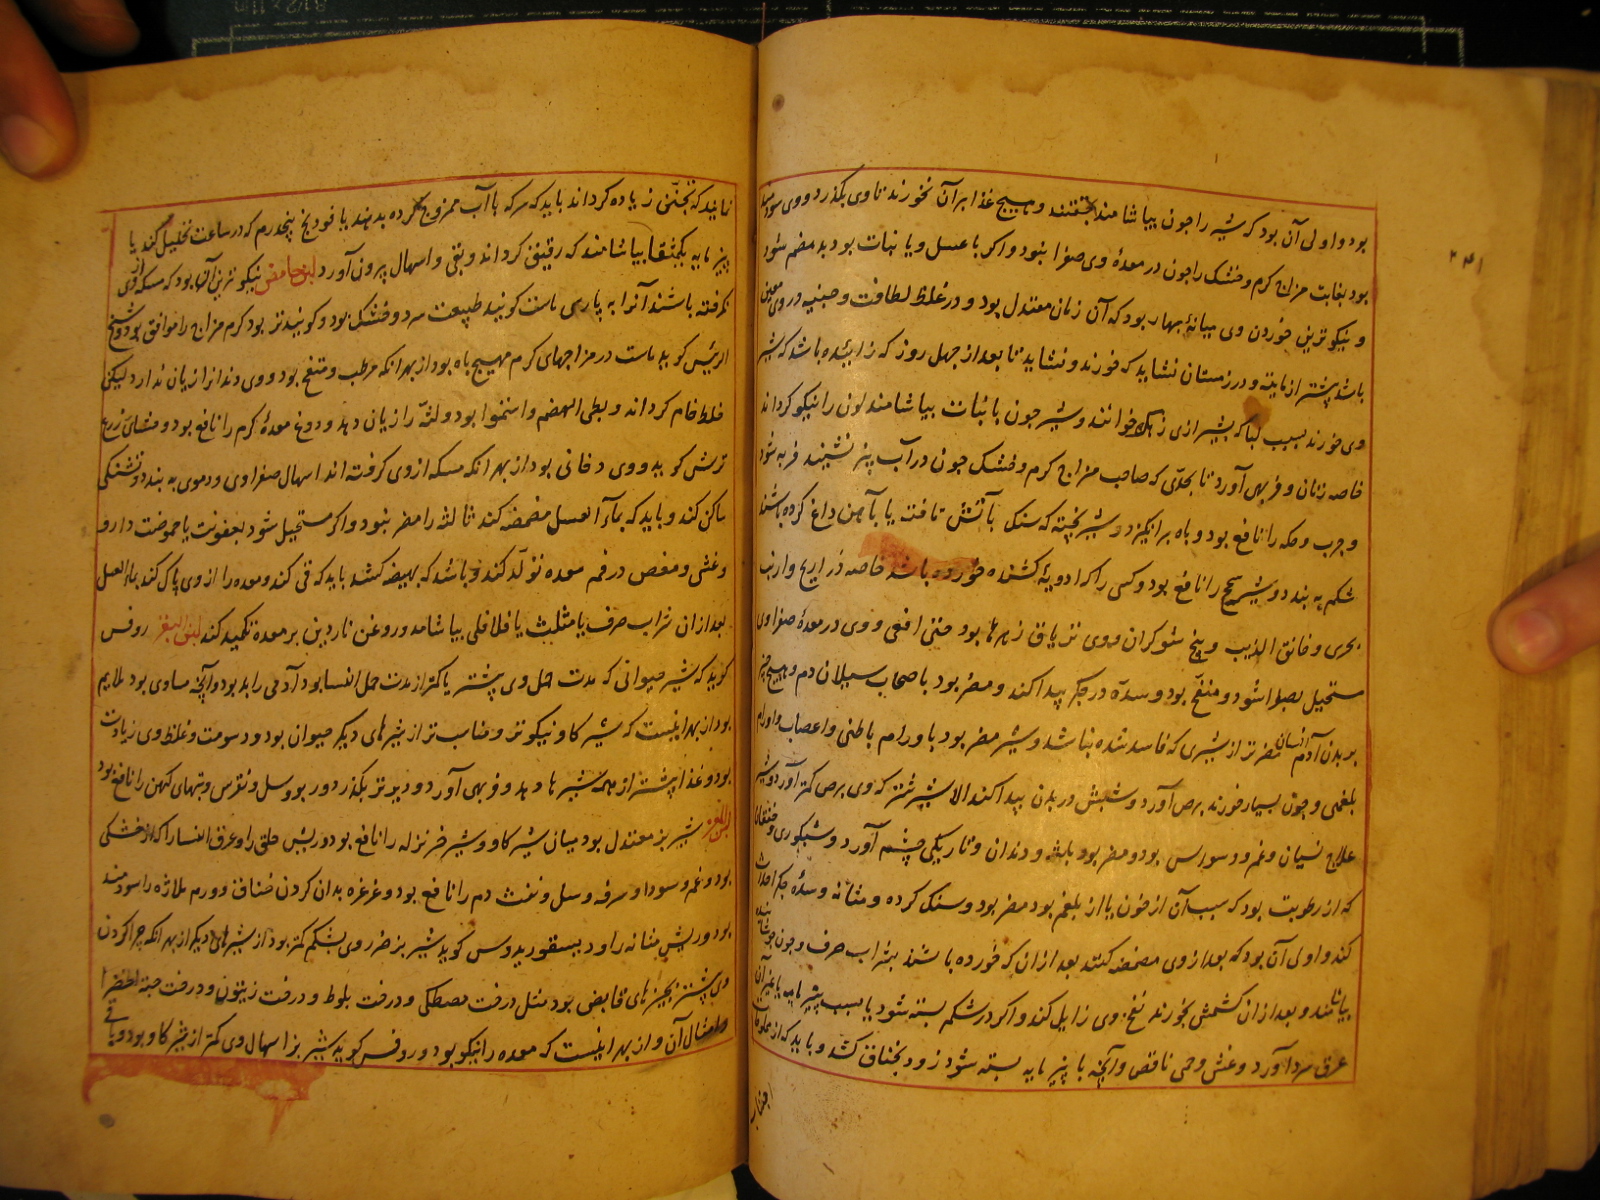 بود و اولی آن بود که شیر را چون بیاشامند بخسبند و هیچ غذا بر آن نخورند تا وی بگذرد و وی سودمند
بود بغایت مزاج گرم و خشک را چون در معدهٔ وی صفرا نبود و اگر با عسل و یا نبات بود بد هضم شود
و نیکوترین خوردن وی میانهٔ بهار بود که آن زمان معتدل بود و در غلظ لطافت و جبنیه در وی معین
باشد پیشتر از مایه و در زمستان نشاید که خورند و نشاید تا بعد از چهل روز که زاییده باشد که شیر
وی خورند بسبب لبا که بشیرازی زهک خوانند و شیر چون با نبات بیاشامند لون را نیکو گرداند
خاصه زنان و فربهی آورد تا بحدی که صاحب مزاج گرم و خشک چون در آب پنیر نشینند فربه شود
و جرب و حکه را نافع بود و باه برانگیزد و شیر پخته که سنک بآتش تافته یا بآهن داغ کرده باشند
شکم به بندد و شیر سحج را نافع بود و کسی را که ادویهٔ کشنده خورده باشد خاصه ذراریح و ارنب
بحری و خانق الذیب و بیخ شوکران و وی تریاق زهرها بود حتی افعی و وی در معدهٔ صفراوی
مستحیل بصفرا شود و منفخ بود و سده در جگر پیدا کند و مضر بود باصحاب سیلان دم و هیچ چیز
بر بدن آدم انسان مضرتر از شیری که فاسد شده باشد نباشد و شیر مضر بود باورام باطنی و اعصاب و اورام
بلغمی و چون بسیار خورند برص آورد و شپش در بدن پیدا کند الا شیر شتر که وی برص کمتر آورد و شیر
علاج نسیان و غم و وسواس بود و مضر بود بلثه و دندان و تاریکی چشم آورد و شبکوری و خفقان
که از رطوبت بود که سبب آن از خون یا از بلغم بود مضر بود و سنک گرده و مثانه و سدهٔ جگر احداث
کند و اولی آن بود که بعد از وی مضمضه کنند بعد از آن که خورده باشند بشراب صرف و چون
بیاشامند و بعد از آن کشمش بخورند نفخ وی زایل کند و اگر در شکم بسته شود یا بسبب پنیر مایه یا غیر آن
عرق سرد آورد و غشی و حمی ناقص و آنچه با پنیر مایه بسته شود زود بخناق کشد و باید که از
اجتناب
نمایند که تجبن زیاده گرداند باید که سرکه با آب ممزوج کرده بدهند یا فودنج پنجدرم که در ساعت تحلیل کند یا
پنیر مایه یکمثقال بیاشامند که رقیق گرداند و بقی و اسهال بیرون آورد لبن حامض نیکوترین آن بود که مسکه از وی
نگرفته باشند آنرا به پارسی ماست گویند طبیعت سرد و خشک بود و گویند تر بود گرم مزاج را موافق بود و شیخ
الرئیس گوید ماست در مزاجهای گرم مهیج باه بود از بهر آنکه مرطب و منفخ بود و وی دندانرا زیان ندارد لیکن
خلط خام گرداند و بطی الهضم و استمرا بود و لثه را زیان دهد و دوغ معدهٔ گرم را نافع بود و
ترش گوید و وی دخانی بود از بهر آنکه مسکه از وی گرفته اند اسهال صفراوی و دموی به بندد و تشنگی
ساکن کند و باید که بماء العسل مضمضه کند تا لثه را مضر نبود و اگر مستحیل شود بعفونت یا حموضت دارف
و غشی و مغص در فم معده تولد کند و باشد که بهیضه کشد باید که قی کند و معده را از وی پاک کند بماء العسل
بعد از آن شراب صرف یا مثلث یا فلافلی بیاشامد و روغن ناردین بر معده تکمید کند لبن البقر روفس
گوید که شیر حیوانی که مدت حمل وی پیشتر یا کمتر از مدت حمل النسا بود آدمی را بد بود و آنچه مساوی بود ملایم
بود از بهر اینست که شیر گاو نیکوتر و مناسب تر از شیرهای دیگر حیوان بود و دسومت و غلظ وی زیادت
بود و غذا پیشتر از همه شیرها دهد و فربهی آورد و دیرتر بگذرد و ربو و سل و نقرس و تبهای کهن را نافع بود
لبن المعز شیر بز معتدل بود میان شیر گاو و شیر خر نزله را نافع بود و ریش حلق را و عرق النسا را که از خشکی
بود و غم و سودا و سرفه و سل و نفث دم را نافع بود و غرغره بدان کردن خناق و ورم ملازه را سودمند
بود و ریش مثانه را و دیسقوریدوس گوید شیر بز ضرر وی بشکم کمتر بود از شیرهای دیگر از بهر آنکه چرا کردن
وی پیشتر بچیزهای قابض بود مثل درخت مصطکی و درخت بلوط و درخت زیتون و درخت حبة الخضرا
و امثال آن و از بهر اینست که معده را نیکو بود و روفس گوید شیر بز اسهال وی کمتر از شیر گاو بود و باقی